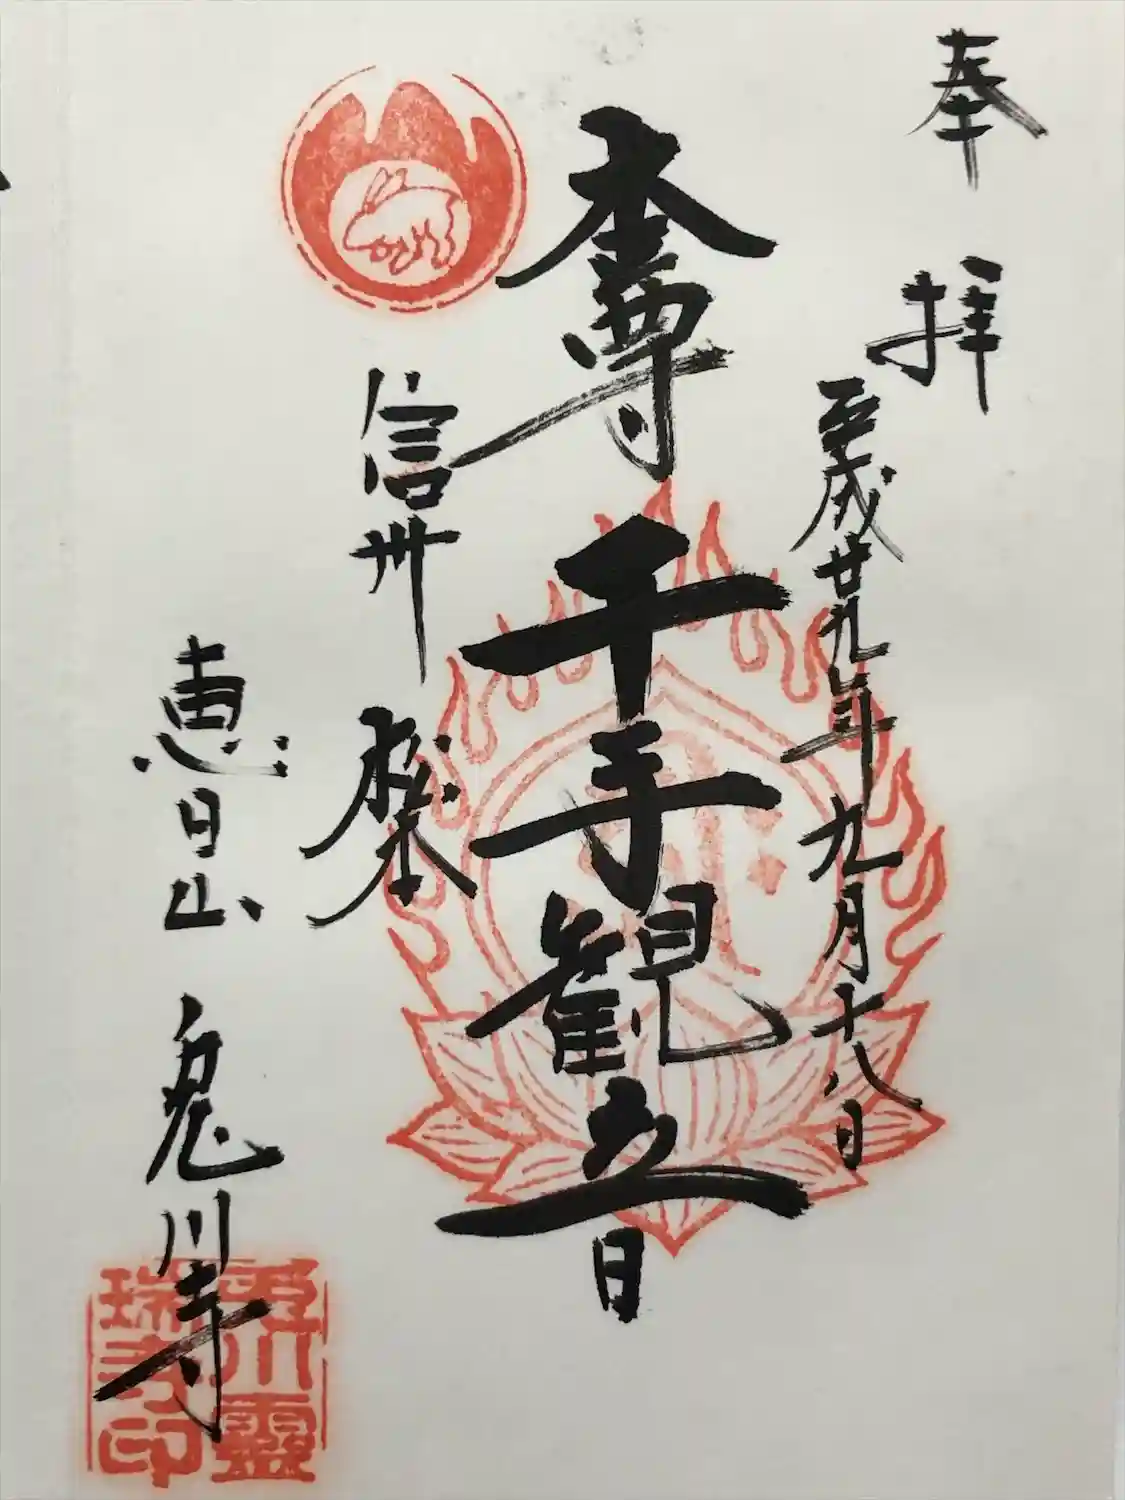 奉拝
平成廿九年九月十八日
本尊
千手観音
信州
松本
恵日山
兎川寺
兎川霊
瑞寺印